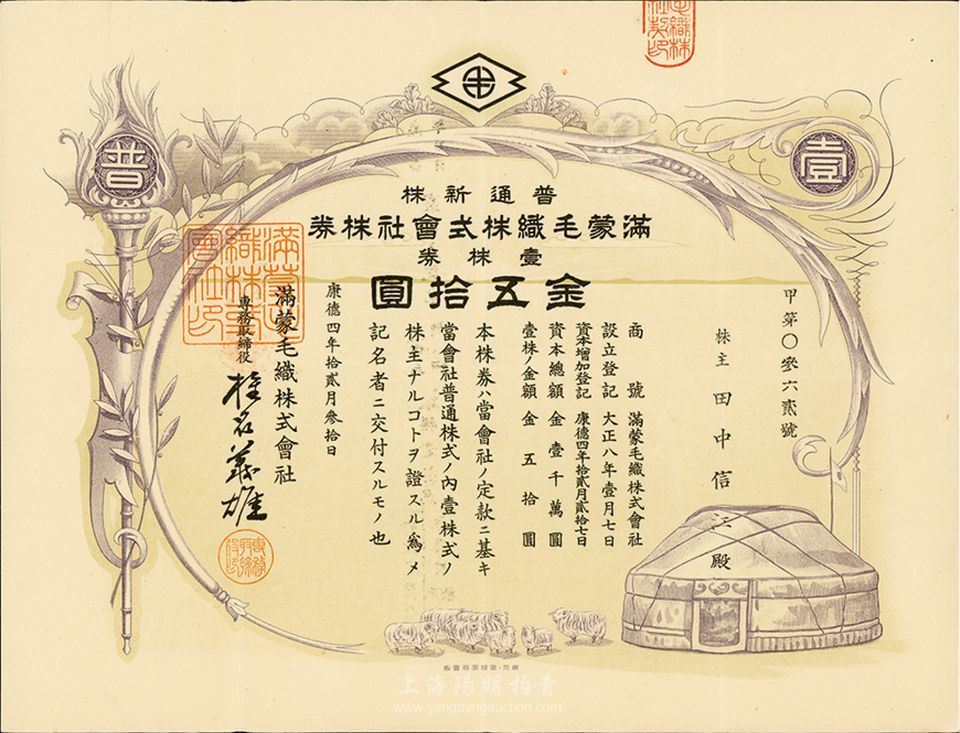 普
壹
普通新株
滿蒙毛織株式會社株券
壹株券
金五拾圓
甲第〇參六貳號
株主 田中信江 殿
商號 滿蒙毛織株式會社
設立登記 大正八年壹月七日
資本增加登記 康德四年拾貳月貳拾七日
資本總額 金壹千萬圓
壹株ノ金額 金五拾圓
本株券ハ當會社ノ定款ニ基キ
當會社普通株式ノ內壹株式ノ
株主ナルコトヲ證スル爲メ
記名者ニ交付スルモノ也
康德四年拾貳月參拾日
滿蒙毛織株式會社
專務取締役 椎名義雄
滿蒙毛
織株式
會社印
上海陽明拍賣
www.yangmingauction.com